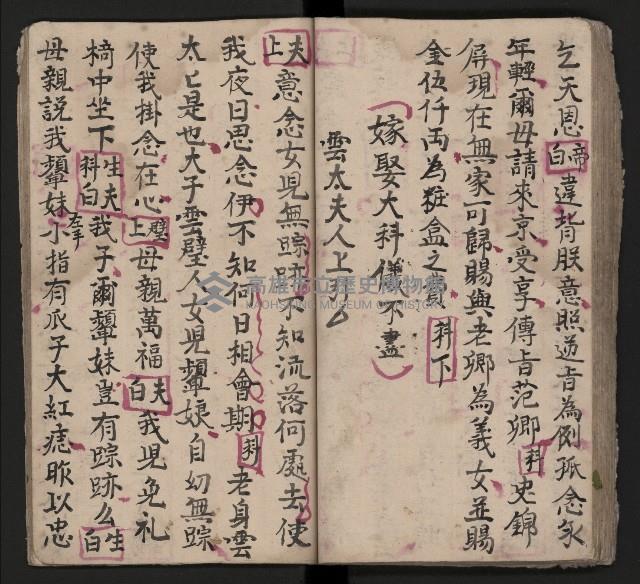 乞天恩帝白違背朕意照逆旨為例孤念永
年輕爾母請來京受享傳旨范卿科史錦
屏現在無家可歸賜與老卿為義女並賜
金伍仟両為粧盒之 科下
（嫁娶大科儀不盡）
雲太夫人上
夫上意念女児無踪跡不知流落何處去使
我夜日思念伊不知何日相會期科老身雲
太匕是也大子雲璧人女児顰娘自幼無踪
使我掛念在心璧上母親萬福夫白我児免礼
椅中坐下生夫科白我子爾顰妹豈有踪跡么生白
母親説我顰妹左手小指有瓜子大紅痣昨以忠
高雄市立歷史博物館
KAOHSIUNG MUSEUM OF HISTORY